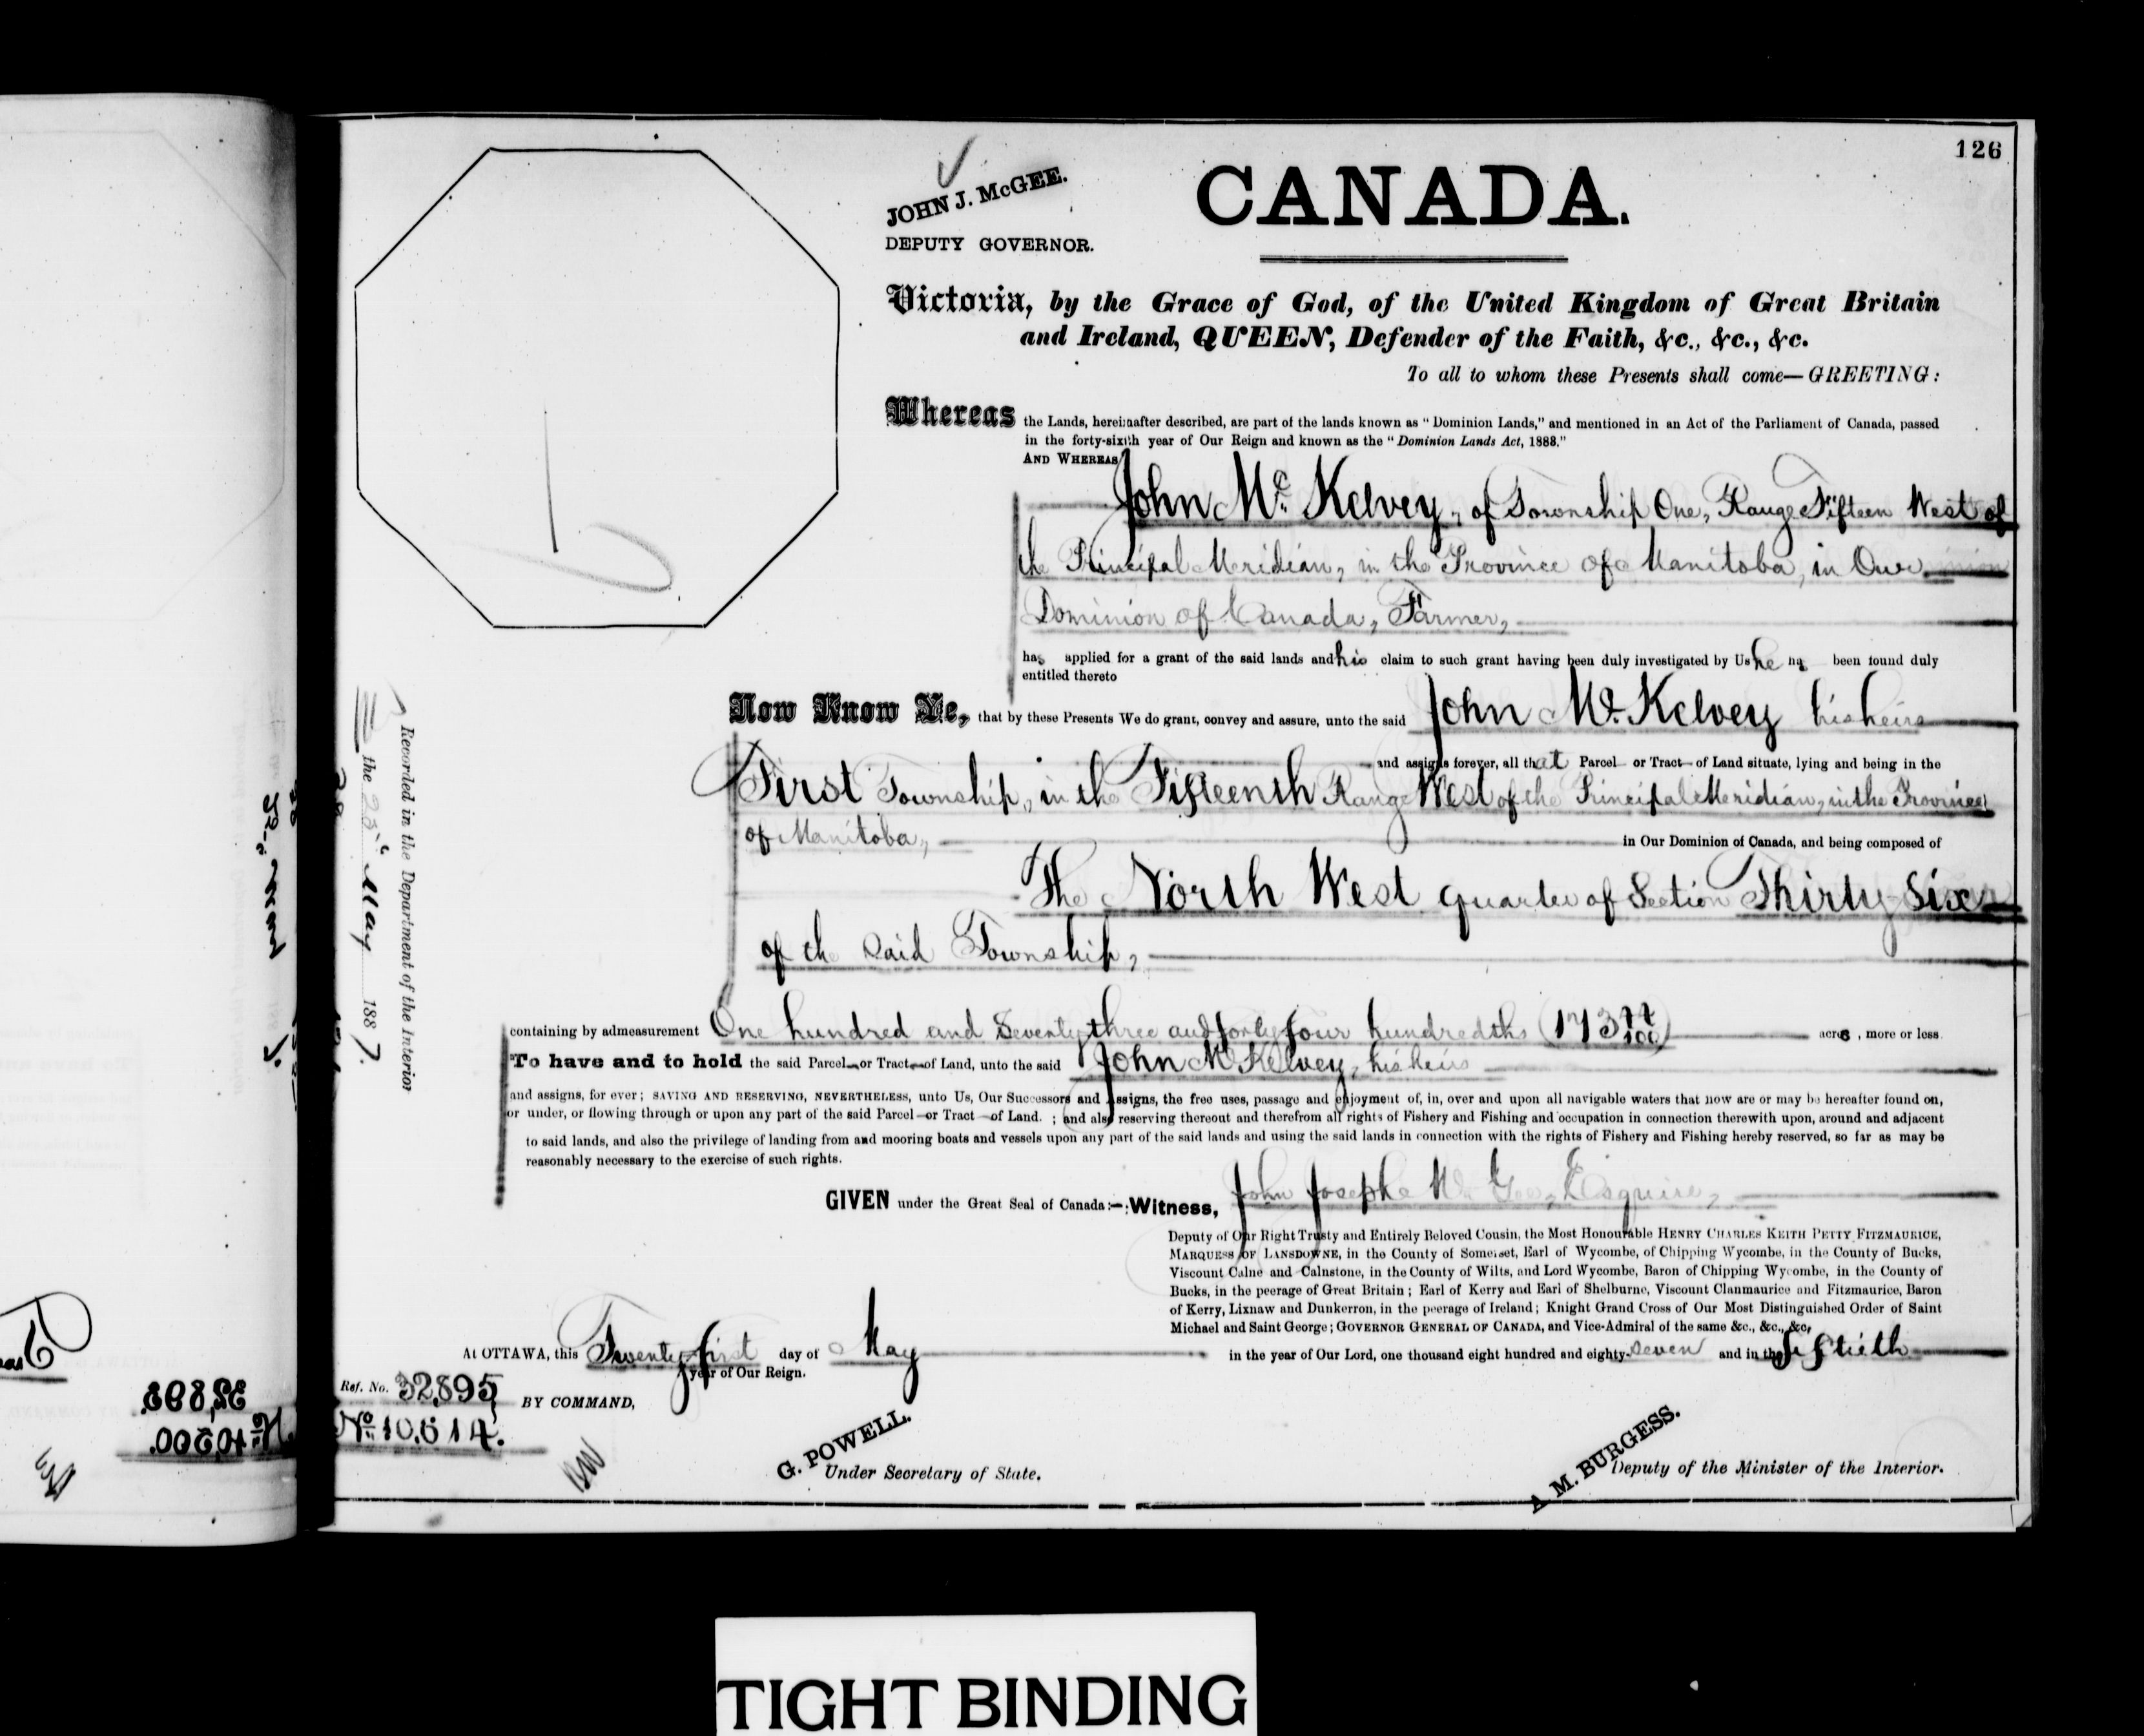 126
JOHN J. McGEE.
DEPUTY GOVERNOR.
CANADA.
Victoria, by the Grace of God, of the United Kingdom of Great Britain
and Ireland, QUEEN, Defender of the Faith, &c., &c., &c.
To all to whom these Presents shall come—GREETING:
Whereas the Lands, hereinafter described, are part of the lands known as "Dominion Lands," and mentioned in an Act of the Parliament of Canada, passed
in the forty-sixth year of Our Reign and known as the "Dominion Lands Act, 1883."
AND WHEREAS
John Mc. Kelvey, of Township One, Range Fifteen West of
the Principal Meridian, in the Province of Manitoba, in Our
Dominion of Canada, Farmer,
has applied for a grant of the said lands and his claim to such grant having been duly investigated by Us he has been found duly
entitled thereto
Now Know Ye, that by these Presents We do grant, convey and assure, unto the said John Mc. Kelvey his heirs
and assigns forever, all that Parcel or Tract of Land situate, lying and being in the
First Township, in the Fifteenth Range West of the Principal Meridian, in the Province
of Manitoba, in Our Dominion of Canada, and being composed of
The North West quarter of Section Thirty Six
of the said Township,
containing by admeasurement One hundred and Seventy three and forty four hundredths (173 44/100) acres, more or less
To have and to hold the said Parcel or Tract of Land, unto the said John McKelvey, his heirs
and assigns, for ever; SAVING AND RESERVING, NEVERTHELESS, unto Us, Our Successors and Assigns, the free uses, passage and enjoyment of, in, over and upon all navigable waters that now are or may be hereafter found on,
or under, or flowing through or upon any part of the said Parcel or Tract of Land. ; and also reserving thereout and therefrom all rights of Fishery and Fishing and occupation in connection therewith upon, around and adjacent
to said lands, and also the privilege of landing from and mooring boats and vessels upon any part of the said lands and using the said lands in connection with the rights of Fishery and Fishing hereby reserved, so far as may be
reasonably necessary to the exercise of such rights.
GIVEN under the Great Seal of Canada:—:Witness, John Joseph McGee, Esquire,
Deputy of Our Right Trusty and Entirely Beloved Cousin, the Most Honourable HENRY CHARLES KEITH PETTY FITZMAURICE,
MARQUESS OF LANSDOWNE, in the County of Somerset, Earl of Wycombe, of Chipping Wycombe, in the County of Bucks,
Viscount Calne and Calnstone, in the County of Wilts, and Lord Wycombe, Baron of Chipping Wycombe, in the County of
Bucks, in the peerage of Great Britain; Earl of Kerry and Earl of Shelburne, Viscount Clanmaurice and Fitzmaurice, Baron
of Kerry, Lixnaw and Dunkerron, in the peerage of Ireland; Knight Grand Cross of Our Most Distinguished Order of Saint
Michael and Saint George; GOVERNOR GENERAL OF CANADA, and Vice-Admiral of the same &c., &c., &c,
At OTTAWA, this Twenty-first day of May in the year of Our Lord, one thousand eight hundred and eighty-seven and in the fiftieth
year of Our Reign.
Ref. No. 32,895
BY COMMAND,
No 10,614.
G. POWELL.
Under Secretary of State.
A. M. BURGESS.
Deputy of the Minister of the Interior.
Recorded in the Department of the Interior
the 25 May 1887.
TIGHT BINDING